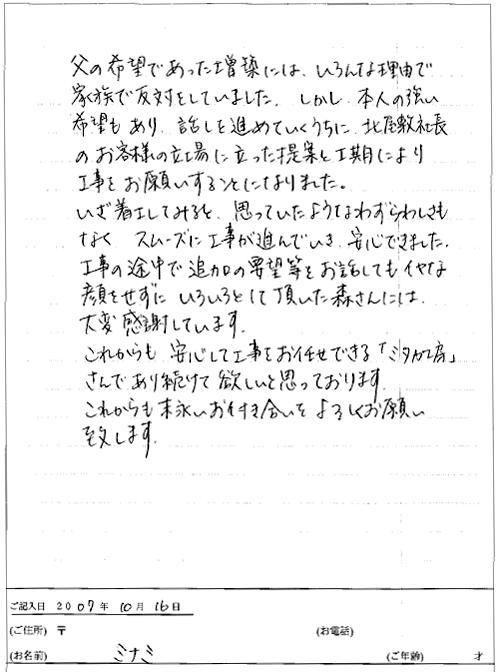 父の希望であった増築には、いろんな理由で
家族で反対をしていました。しかし、本人の強い
希望もあり、話しを進めていくうちに、北屋敷社長
のお客様の立場に立った提案と工期により
工事をお願いすることになりました。
いざ着工してみると、思っていたようなわずらわしさも
なく スムーズに工事が進んでいき、安心できました。
工事の途中で追加の要望等をお話してもイヤな
顔をせずに いろいろとして頂いた森さんには、
大変感謝しています。
これからも、安心して工事をお任せできる「ミタカ工房」
さんであり続けて欲しいと思っております。
これからも末永いお付き合いを よろしくお願い
致します。
ご記入日 2007年 10月 16日
(ご住所) 〒 (お電話)
(お名前) ミナミ (ご年齢) 才